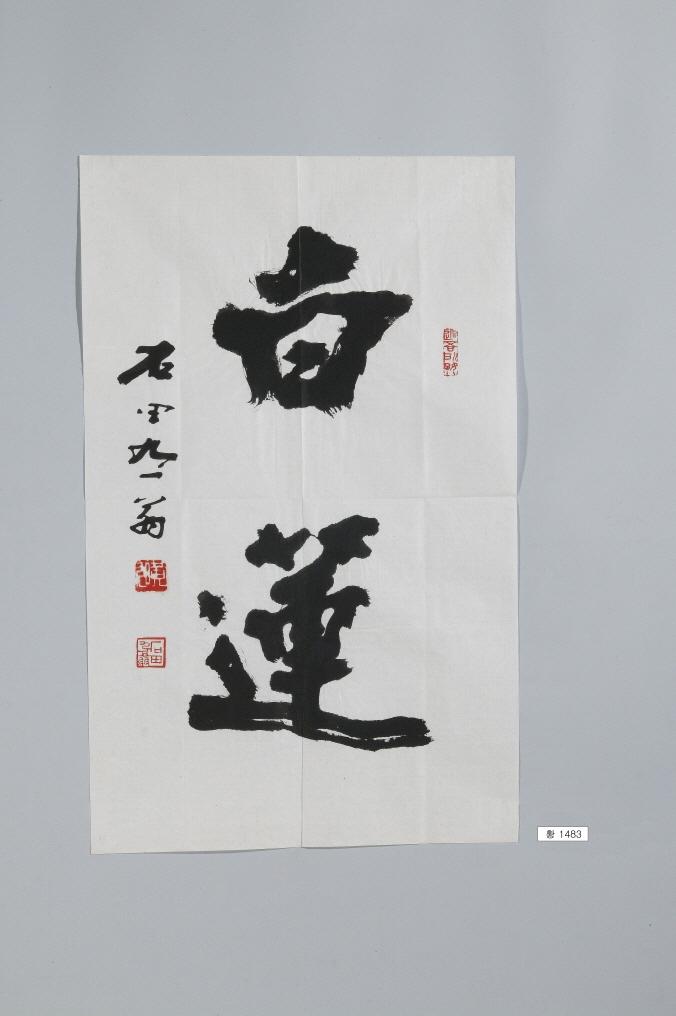 白蓮
石田九一翁
황 1483